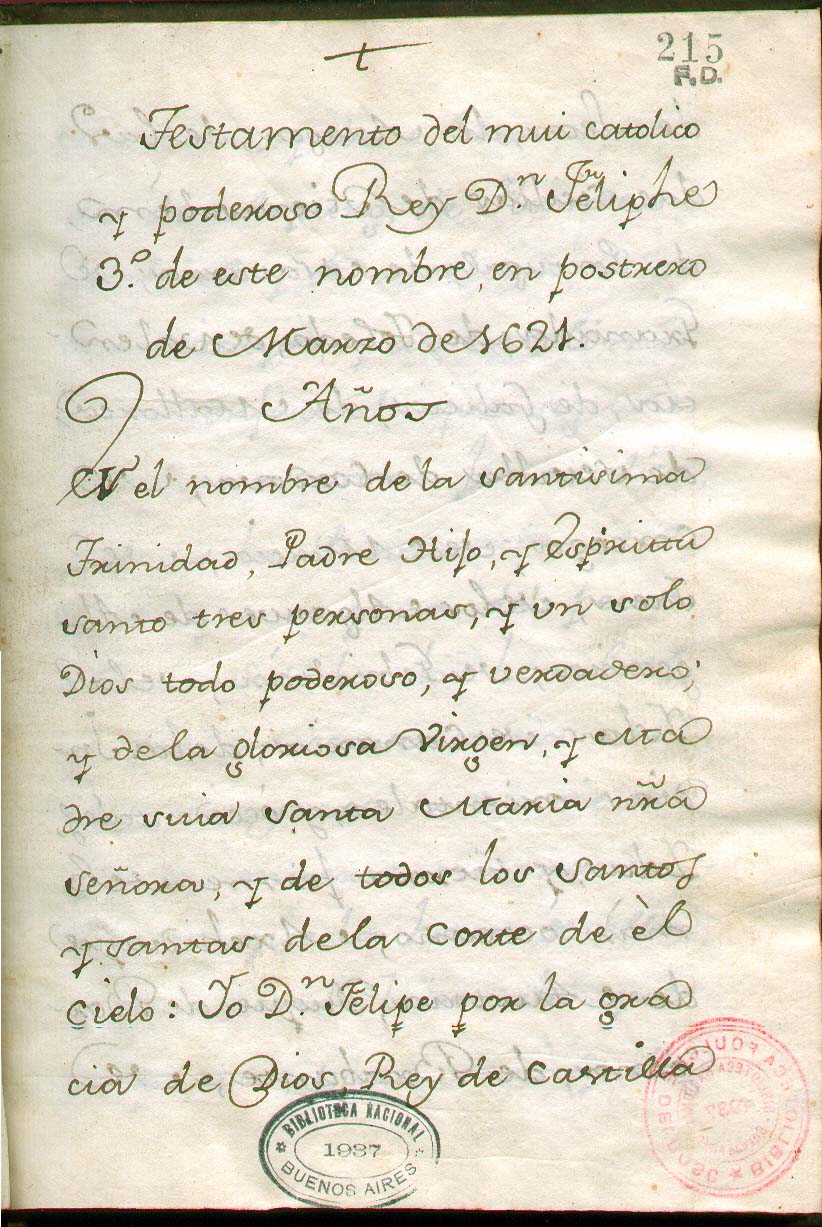 †
215
F.D.
Testamento del mui catolico
y poderoso Rey Dn Feliphe
3.º de este nombre, en postrero
de Marzo de 1621.
Años
EN el nombre de la santisima
Trinidad, Padre Hijo, y Espirittu
santo tres personas, y un solo
Dios todo poderoso, y verdadero;
y de la gloriosa Virgen, y Ma
dre suia santa Maria nr̃a
señora, y de todos los santos
y santas de la corte de èl
cielo: Yo Dn Felipe por la gra
cia de Dios, Rey de Castilla
BIBLIOTECA NACIONAL
1937
BUENOS AIRES